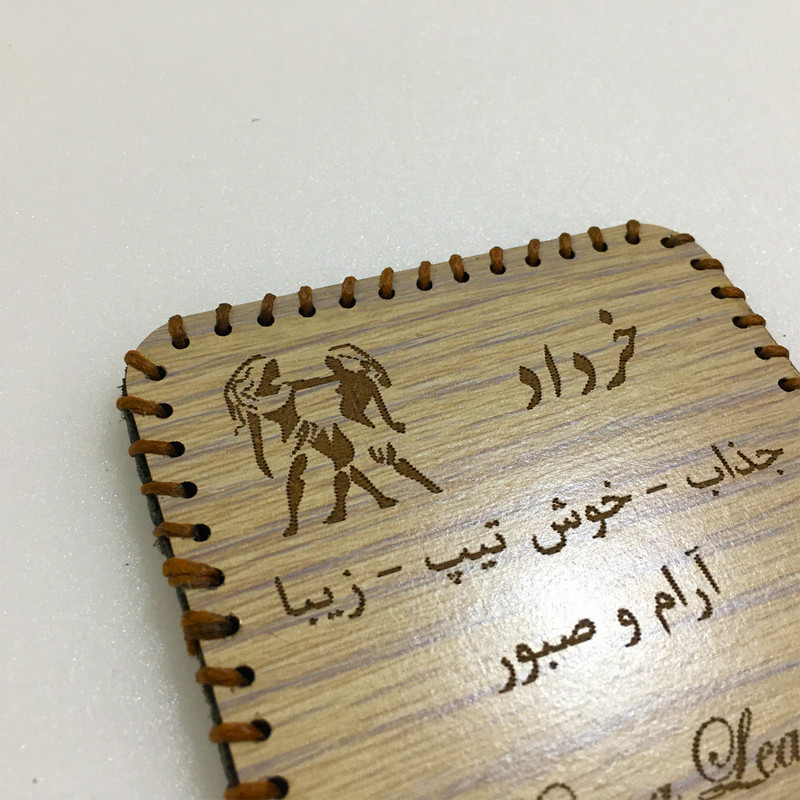 خرداد
جذاب - خوش تیپ - زیبا
آرام و صبور